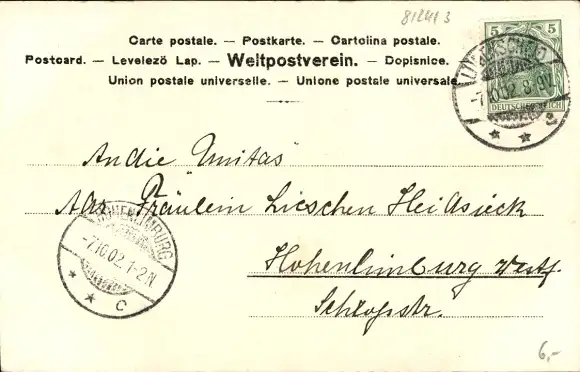 81241 3
Carte postale. — Postkarte. — Cartolina postale.
Postcard. — Levelező Lap. — Weltpostverein. — Dopisnice.
Union postale universelle. — Unione postale universale.
5 5
DEUTSCHES REICH
LÜDENSCHEID
-7.10.02. 8-9V.
* * 2
An die Unitas
Adr. Fräulein Lieschen Heidsieck
Hohenlimburg Westf.
Schloßstr.
HOHENLIMBURG
-7.10.02. 1-2N
* * C
6,-